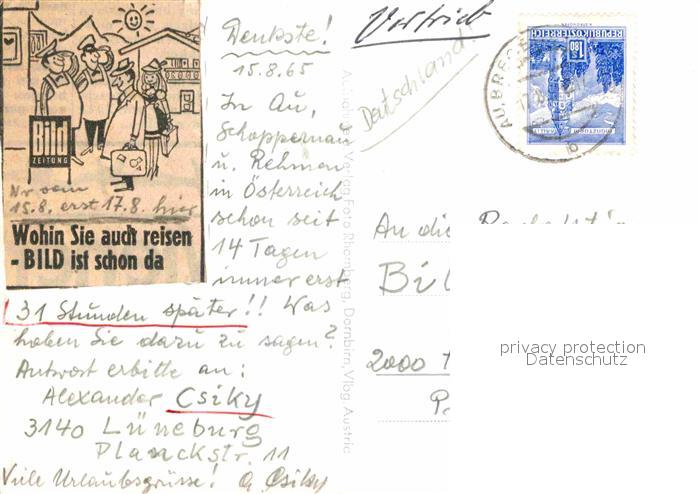 Bild
ZEITUNG
Nr vom
15.8. erst 17.8. hier
Wohin Sie auch reisen
- BILD ist schon da
Denkste!
15.8.65
In Au,
Schoppernau
u. Rehmen
in Österreich
schon seit
14 Tagen
immer erst
31 Stunden später!! Was
haben Sie dazu zu sagen?
Antwort erbitte an:
Alexander Csiky
3140 Lüneburg
Planckstr. 11
Viele Urlaubsgrüsse! A Csiky
Verlag Foto Rhomberg, Dornbirn, Vlbg Austria
Vertrieb
Deutschland!
REPUBLIK ÖSTERREICH
1.80
An die
Bil
2000
privacy protection
Datenschutz